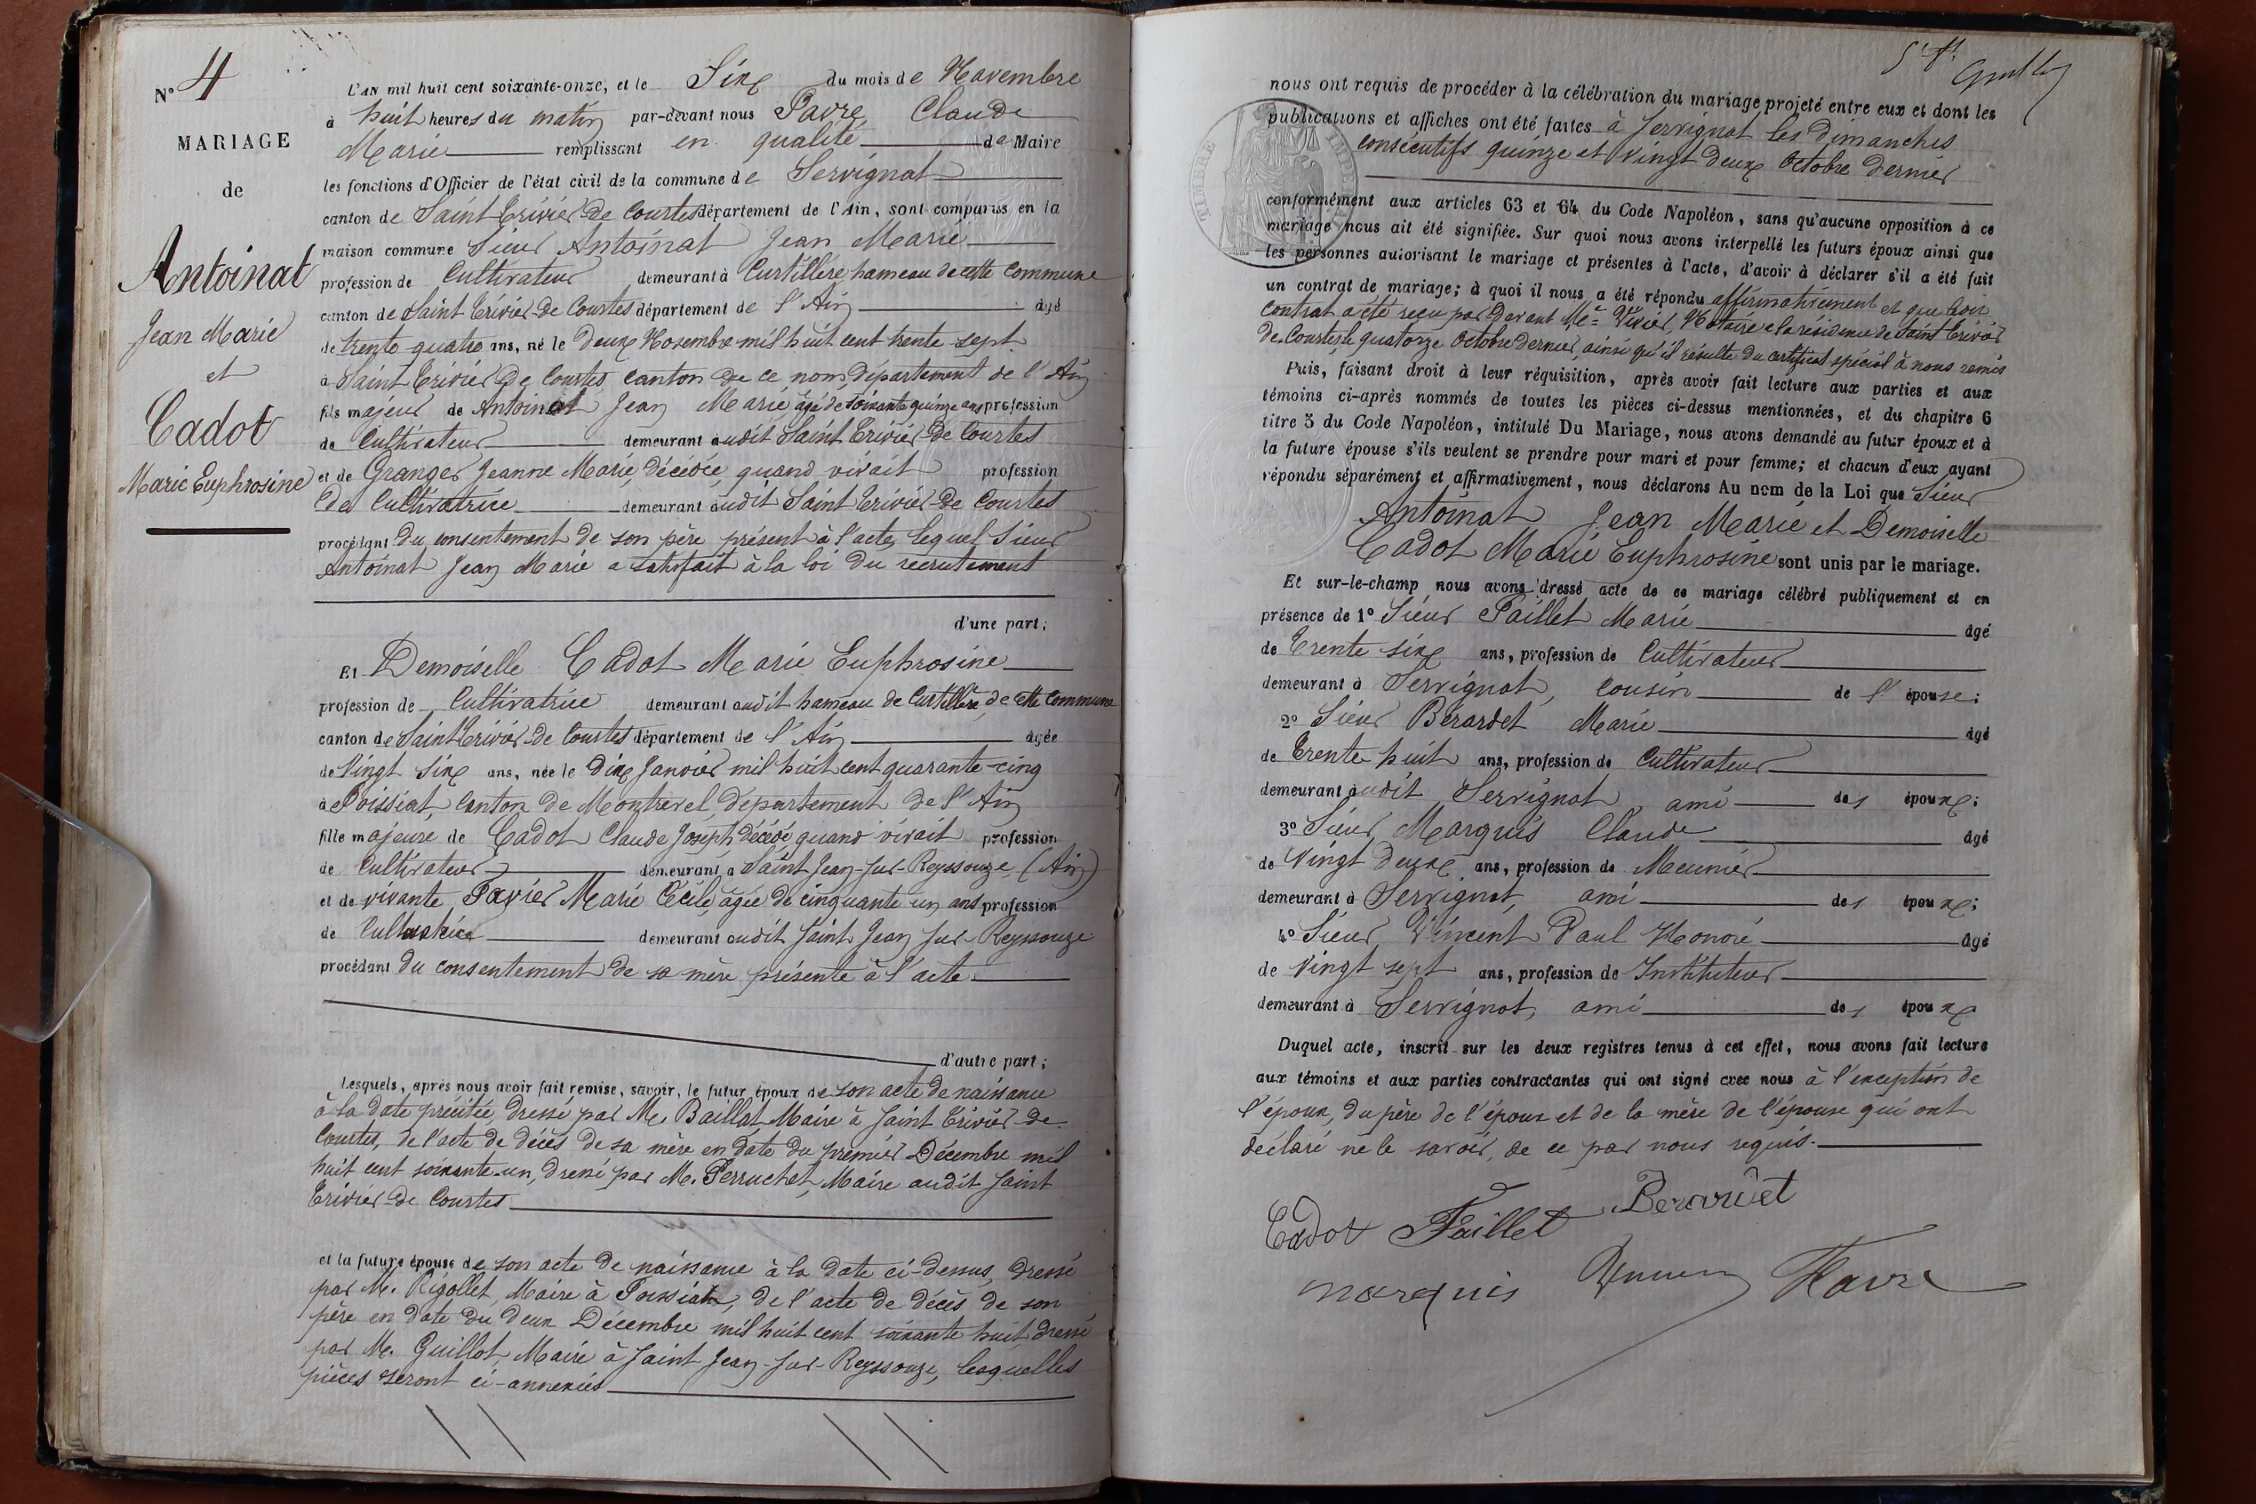 N° 4
MARIAGE
de
Antoinat
Jean Marie
et
Cadot
Marie Euphrosine
L'AN mil huit cent soixante-onze, et le Six du mois de Novembre
à huit heures du matin par-devant nous Favre, Claude
Marie remplissant en qualité de Maire
les fonctions d'Officier de l'état civil de la commune de Servignat
canton de Saint Trivier de Courtes département de l'Ain, sont comparus en la
maison commune Sieur Antoinat Jean Marie
profession de Cultivateur demeurant à Curtillère hameau de cette commune
canton de Saint Trivier de Courtes département de l'Ain âgé
de trente quatre ans, né le deux Novembre mil huit cent trente sept
à Saint Trivier de Courtes, canton de ce nom, département de l'Ain
fils majeur de Antoinat Jean Marie âgé de soixante quinze ans profession
de Cultivateur demeurant audit Saint Trivier de Courtes
et de Granger Jeanne Marie, décédée, quand vivait profession
de Cultivatrice demeurant audit Saint Trivier de Courtes
procédant du consentement de son père présent à l'acte, lequel Sieur
Antoinat Jean Marie a satisfait à la loi du recrutement
d'une part;
Et Demoiselle Cadot Marie Euphrosine
profession de Cultivatrice demeurant audit hameau de Curtillère, de cette commune
canton de Saint Trivier de Courtes département de l'Ain âgée
de Vingt six ans, née le dix Janvier mil huit cent quarante-cinq
à Foissiat, canton de Montrevel, département de l'Ain
fille majeure de Cadot Claude Joseph, décédé, quand vivait profession
de Cultivateur demeurant à Saint Jean-sur-Reyssouze, (Ain)
et de vivante Favier Marie Cécile, âgée de cinquante un ans profession
de Cultivatrice demeurant audit Saint Jean sur Reyssouze
procédant du consentement de sa mère présente à l'acte.
d'autre part;
Lesquels, après nous avoir fait remise, savoir, le futur époux de son acte de naissance
à la date précitée, dressé par M. Baillat, Maire à Saint Trivier-de-
Courtes, de l'acte de décès de sa mère en date du premier Décembre mil
huit cent soixante-un, dressé par M. Perruchet, Maire audit Saint
Trivier-de Courtes
et la future épouse de son acte de naissance à la date ci-dessus, dressé
par M. Rigollet, Maire à Foissiat, de l'acte de décès de son
père en date du deux Décembre mil huit cent soixante huit, dressé
par M. Guillot, Maire à Saint Jean-sur-Reyssouze, lesquelles
pièces seront ci-annexées
nous ont requis de procéder à la célébration du mariage projeté entre eux et dont les
publications et affiches ont été faites à Servignat les dimanches
consécutifs quinze et vingt deux Octobre dernier
conformément aux articles 63 et 64 du Code Napoléon, sans qu'aucune opposition à ce
mariage nous ait été signifiée. Sur quoi nous avons interpellé les futurs époux ainsi que
les personnes autorisant le mariage et présentes à l'acte, d'avoir à déclarer s'il a été fait
un contrat de mariage; à quoi il nous a été répondu affirmativement et que leur
contrat a été reçu par devant Me Vivier, Notaire à la résidence de Saint Trivier
de Courtes le quatorze Octobre dernier, ainsi qu'il résulte du certificat spécial à nous remis
Puis, faisant droit à leur réquisition, après avoir fait lecture aux parties et aux
témoins ci-après nommés de toutes les pièces ci-dessus mentionnées, et du chapitre 6
titre 5 du Code Napoléon, intitulé Du Mariage, nous avons demandé au futur époux et à
la future épouse s'ils veulent se prendre pour mari et pour femme; et chacun d'eux ayant
répondu séparément et affirmativement, nous déclarons Au nom de la Loi que Sieur
Antoinat Jean Marie et Demoiselle
Cadot Marie Euphrosine sont unis par le mariage.
Et sur-le-champ nous avons dressé acte de ce mariage célébré publiquement et en
présence de 1° Sieur Paillet Marie âgé
de Trente six ans, profession de Cultivateur
demeurant à Servignat, cousin de l'épouse;
2° Sieur Bérardet Marie âgé
de Trente huit ans, profession de Cultivateur
demeurant audit Servignat, ami des époux;
3° Sieur Marquis Claude âgé
de Vingt deux ans, profession de Meunier
demeurant à Servignat, ami des époux;
4° Sieur Vincent Paul Honoré âgé
de Vingt sept ans, profession de Instituteur
demeurant à Servignat, ami des époux
Duquel acte, inscrit sur les deux registres tenus à cet effet, nous avons fait lecture
aux témoins et aux parties contractantes qui ont signé avec nous à l'exception de
l'époux, du père de l'époux et de la mère de l'épouse qui ont
déclaré ne le savoir, de ce par nous requis.
Cadot Paillet Berardet
marquis Vincent Favre